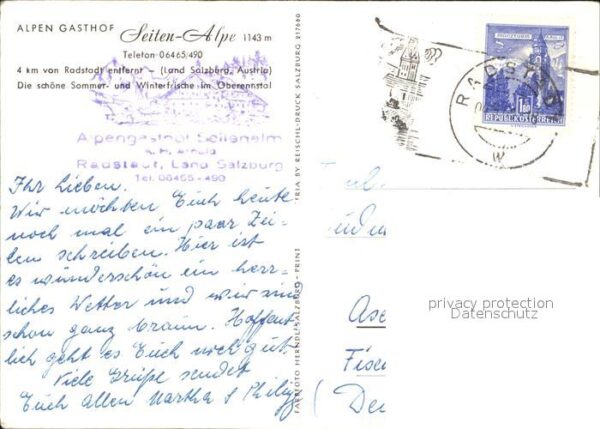 ALPEN GASTHOF Seiten-Alpe 1143 m
Telefon 06465/490
4 km von Radstadt entfernt – (Land Salzburg, Austria)
Die schöne Sommer- und Winterfrische im Oberennstal
Alpengasthof Seitenalm
Radstadt, Land Salzburg
Tel. 06465-490
Ihr Lieben.
Wir möchten Euch heute
noch mal ein paar Zei-
len schreiben. Hier ist
es wunderschön ein herr-
liches Wetter und wir sind
schon ganz braun. Hoffent
lich geht es Euch noch gut.
Viele Grüße sendet
Euch allen Martha & Philipp
FARBFOTO HERNDL-SALZBURG - PRINTED IN AUSTRIA BY REISCHL-DRUCK SALZBURG 217680
REPUBLIK ÖSTERREICH
RADSTADT
privacy protection
Datenschutz